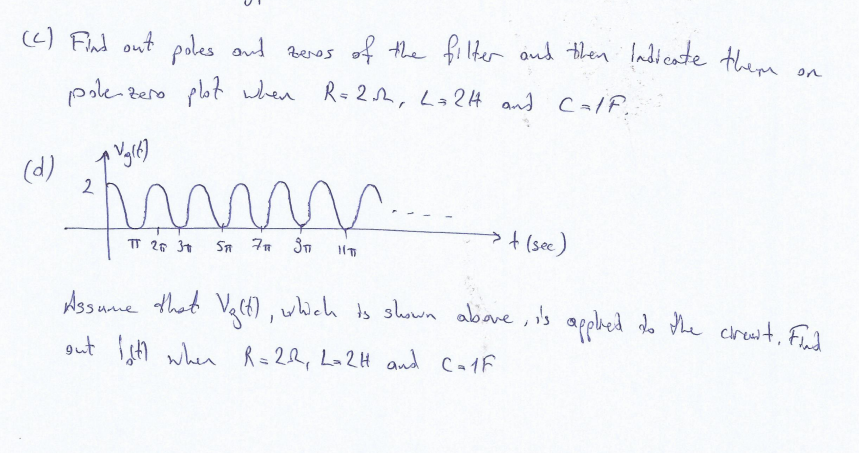 (c) Find out poles and zeros of the filter and then Indicate them on
pole-zero plot when R=2Ω, L=2H and C=1F.
(d)
Vg(t)
2
π 2π 3π 5π 7π 9π 11π
t (sec)
Assume that Vg(t), which is shown above, is applied to the circuit. Find
out io(t) when R=2Ω, L=2H and C=1F